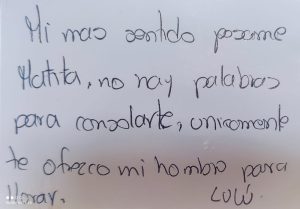 Mi mas sentido pesame
Matita, no hay palabras
para consolarte, unicamente
te ofrezco mi hombro para
llorar. LULÚ.